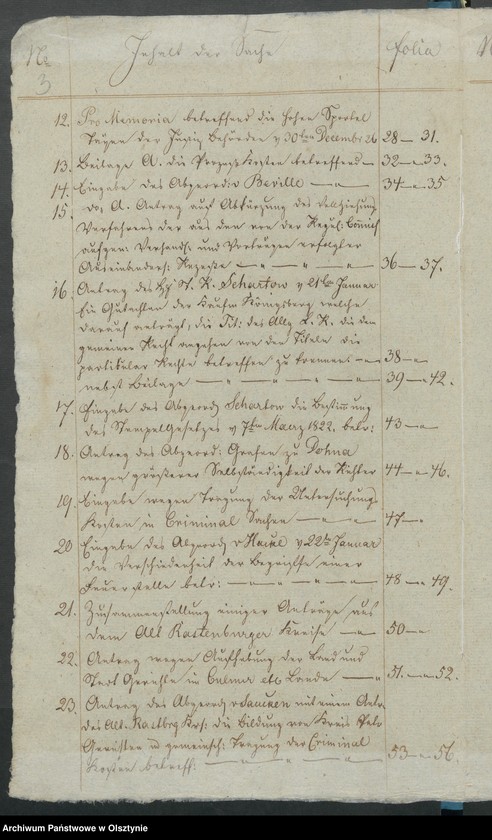 No Inhalt der Sache folia
3
12. Pro Memoria betreffend die hohen Sportel
Taxen der Justiz behörden v 30ten December 26 28 — 31.
13. Beilage A. die Prozeß Kosten betreffend — 32 — 33.
14. Eingabe des Abgeord: v Beville — " — 34 — 35
15. do: A. Antrag auf Abkürzung des Vollziehung
Verfahrens der aus den von der Regul: Commiss
aufgen: Verhandl: und Verträgen erfolgter
Auseinanders: Rezesse — " — " — " — 36 — 37.
16. Antrag des T. R. Schartow v 21ten Januar
Ein Gutachten der Kaufm Königsberg welche
darauf anträgt, die Tit: des Allg L. R. die dem
gemeinen Recht angehen von den Titeln die
partikular Rechte betreffen zu trennen — " 38 — "
nebst Beilage — " — " — " — " 39 — 42.
17. Eingabe des Abgeord Schartow die Bestimung
des Stempelgesetzes v 7ten Maerz 1822. betr: 43 — "
18. Antrag des Abgeord: Grafen zu Dohna
wegen größerer Selbständigkeit der Richter 44 — 46.
19. Eingabe wegen Tragung der Untersuchungs
Kosten in Criminal Sachen — " — " 47 — .
20 Eingabe des Abgeord v Hacke v 22ten Januar
die Verschiedenheit der Begriffe einer
Feuerstelle betr: — " — " — " — 48 — 49.
21. Zusammenstellung einiger Anträge aus
dem Alt Rastenburger Kreise — " 50 — "
22. Antrag wegen Aufhebung der Land und
Stadt Gerichte im Culmer etc Lande — " 51. — 52.
23. Antrag des Abgeord v Saucken mit einem Antr.
des Alt. Rastbrg Krs: die Bildung von Kreis
Gerichten u gemeinsch: Tragung der Criminal
Kosten betreff: — " — " — " 53 — 56.
Archiwum Państwowe w Olsztynie